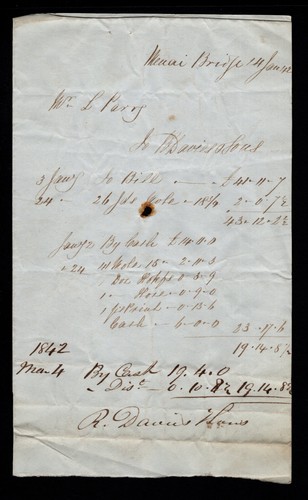 Menai Bridge 14 Jany 42
Mr L Parry
To R Davies & Sons
3 Jany To Bill - £41-11-7
24 - 26 - 18/4 2-0-7½
43-12-2½
Jany 2 By Cash £14-0-0
" 24 11 13- 2-10-3
0-3-9
1 0-9-0
1 0-13-6
Cash - 6-0-0 23-17-6
19-14-8½
1842
Mar 4 By Cash 19.4.0
" Disct 0.10.8½ 19.14.8½
R. Davies & Sons